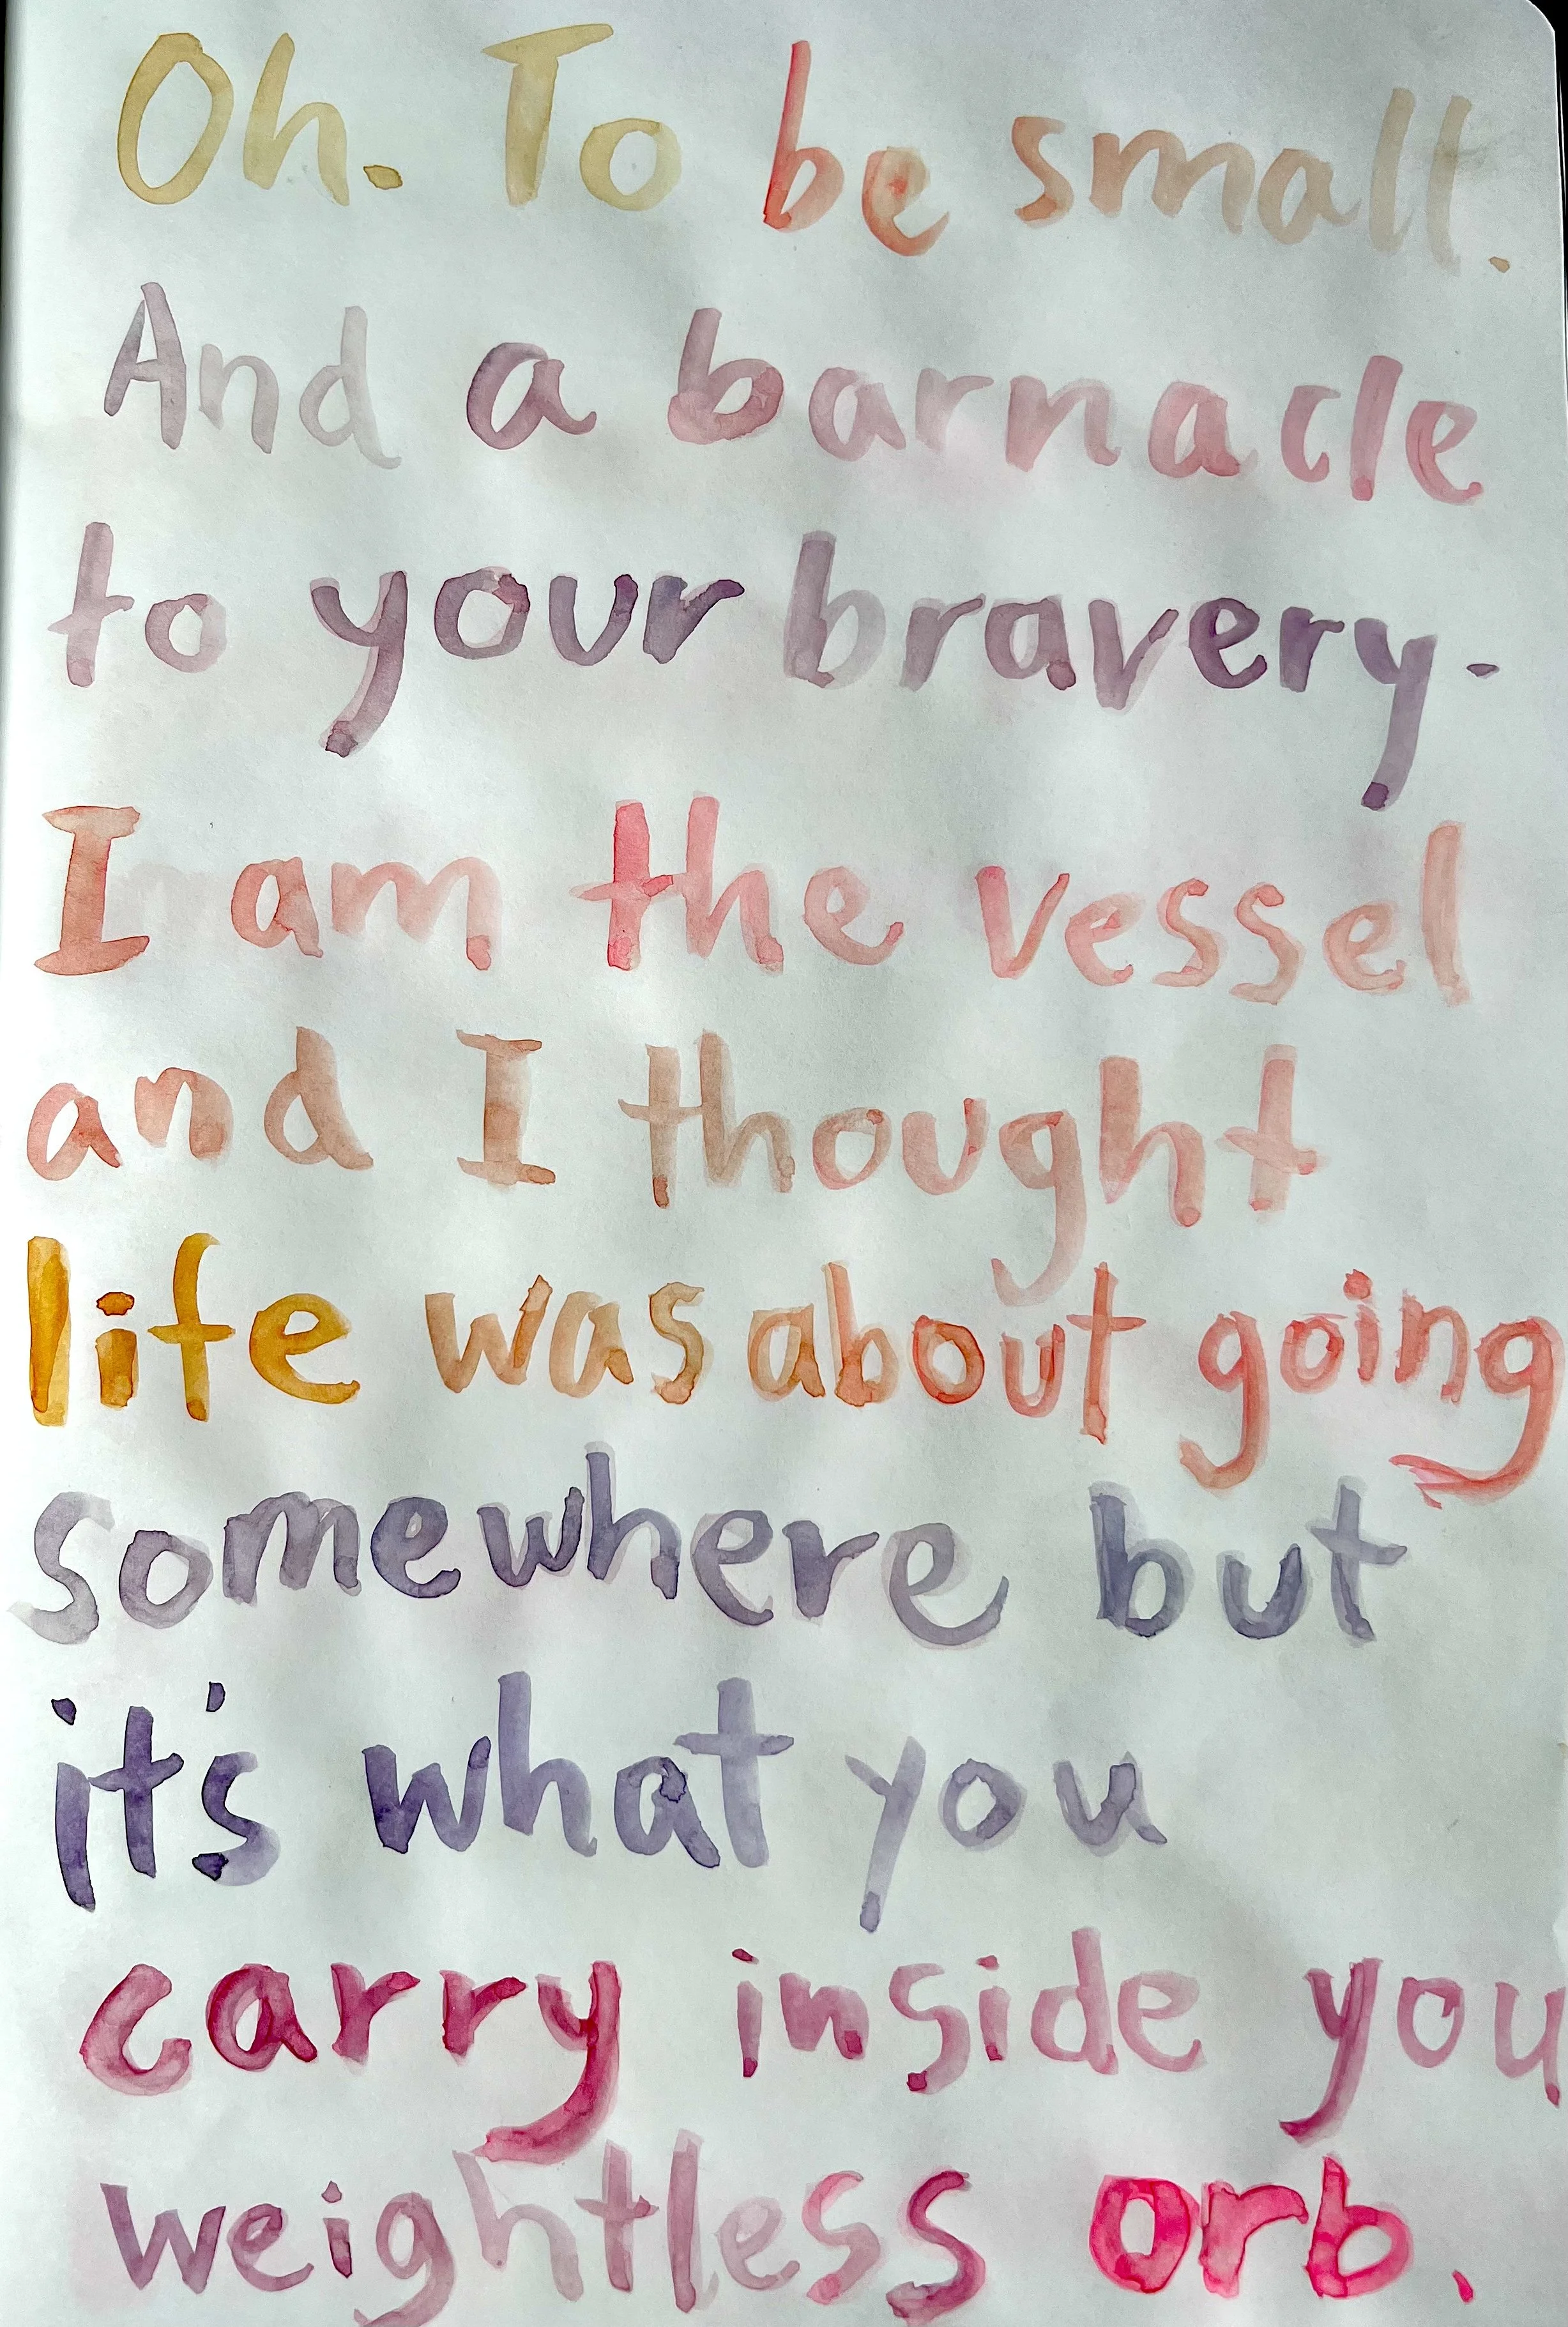 Oh. To be small.
And a barnacle
to your bravery.
I am the vessel
and I thought
life was about going
somewhere but
it's what you
carry inside you
weightless orb.